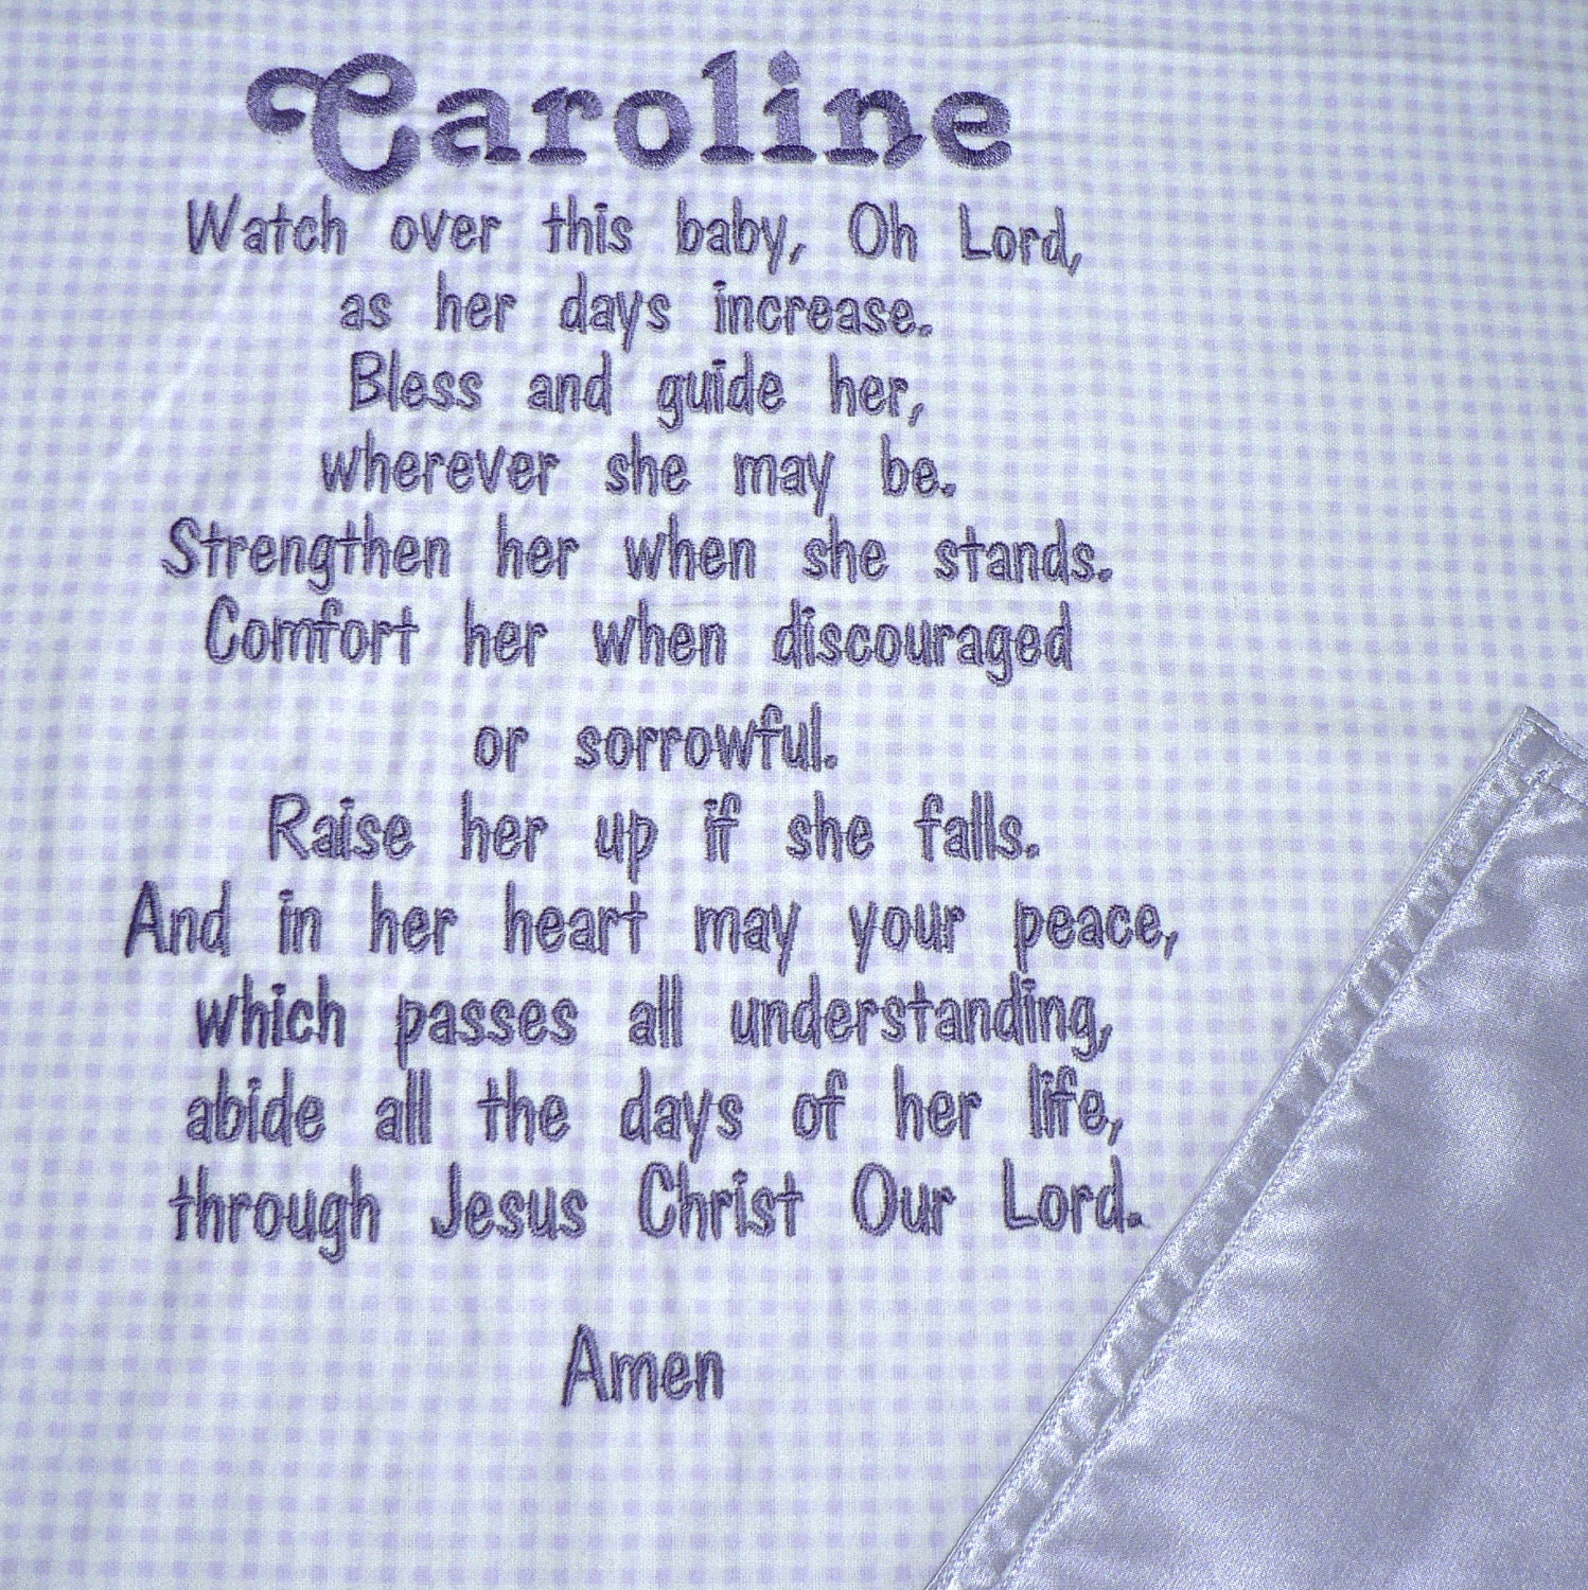 Caroline
Watch over this baby, Oh Lord,
as her days increase.
Bless and guide her,
wherever she may be.
Strengthen her when she stands.
Comfort her when discouraged
or sorrowful.
Raise her up if she falls.
And in her heart may your peace,
which passes all understanding,
abide all the days of her life,
through Jesus Christ Our Lord.
Amen